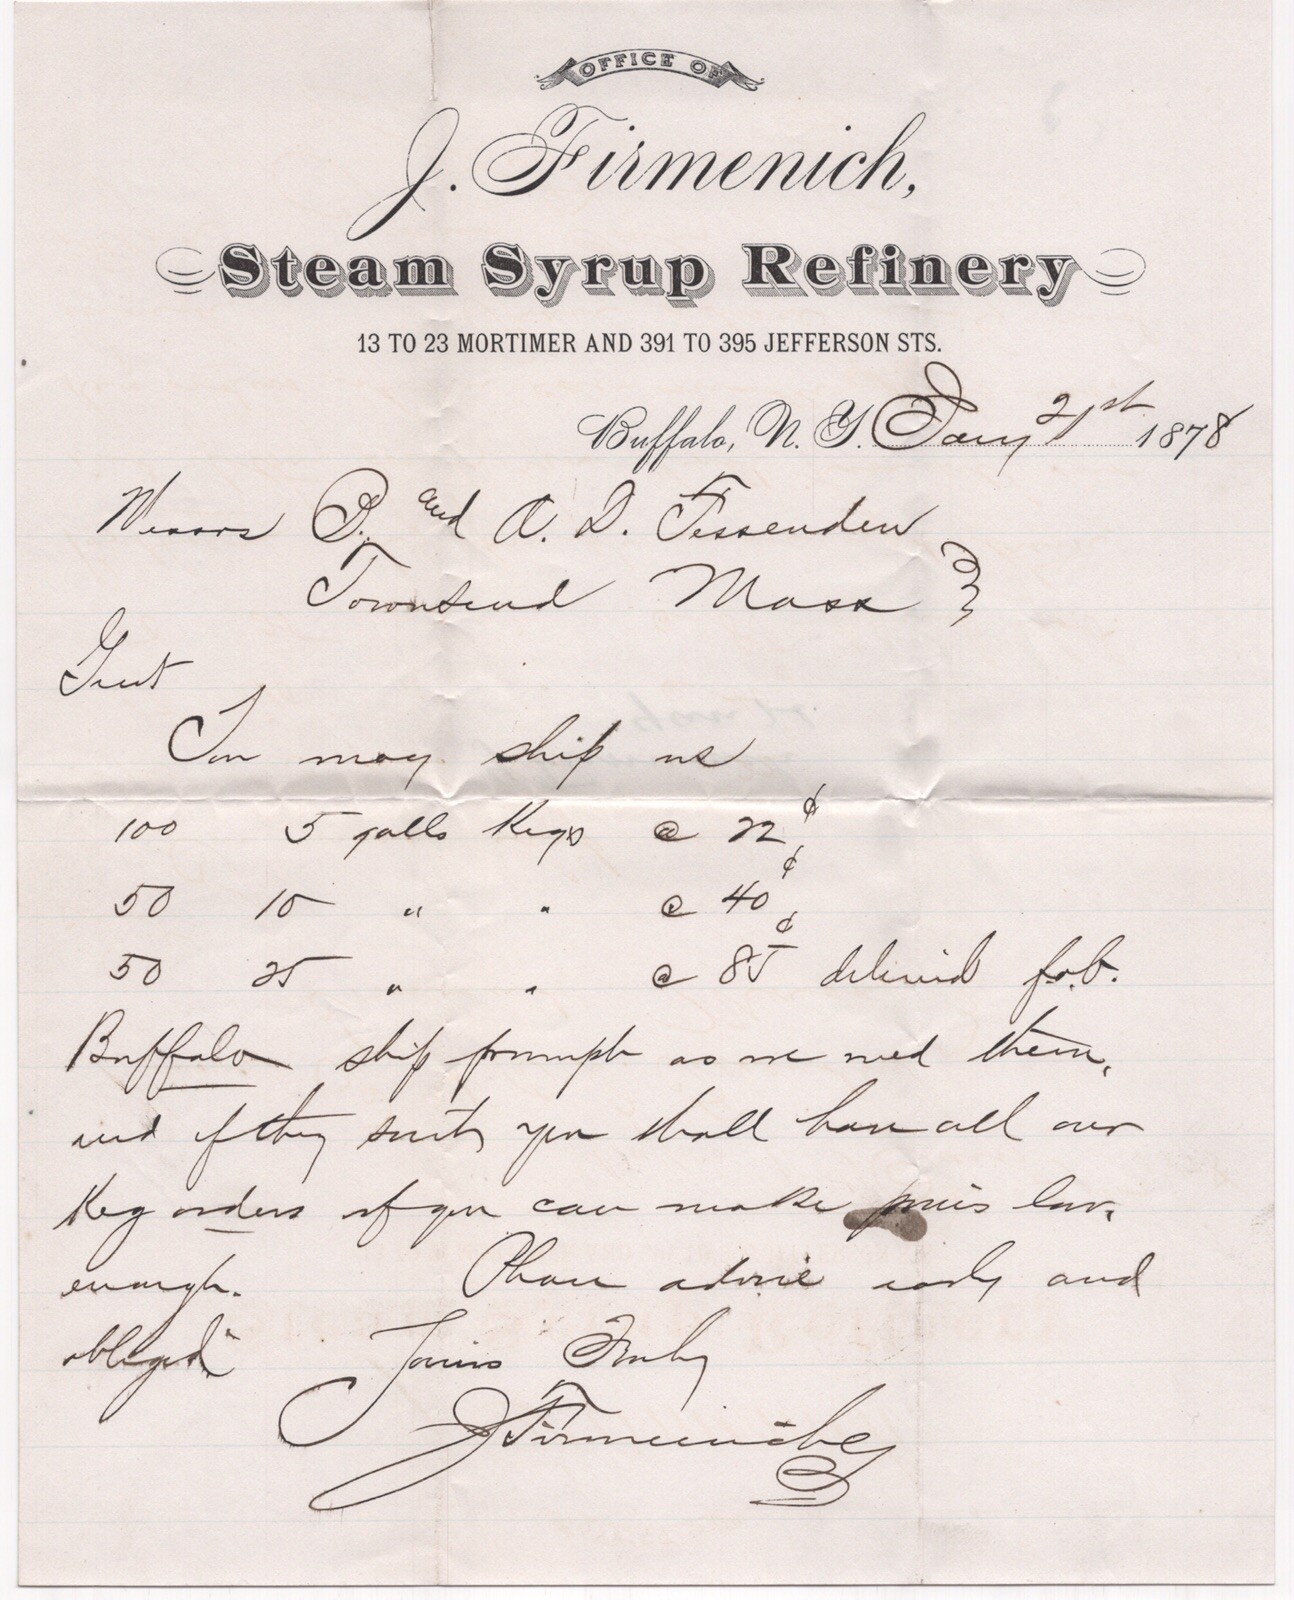 OFFICE OF
J. Firmenich,
Steam Syrup Refinery
13 TO 23 MORTIMER AND 391 TO 395 JEFFERSON STS.
Buffalo, N. Y. Jany 21st 1878
Messrs B. and A. D. Fessenden
Townsend Mass
Gent
You may ship us
100 5 galls Kegs @ 22¢
50 10 " " @ 40¢
50 25 " " @ 85¢ deliverd f.o.b.
Buffalo ship prompt as we need them,
and if they suit, you shall have all our
Keg orders if you can make prices low
enough. Please advise early and
oblige Yours Truly
J Firmenich